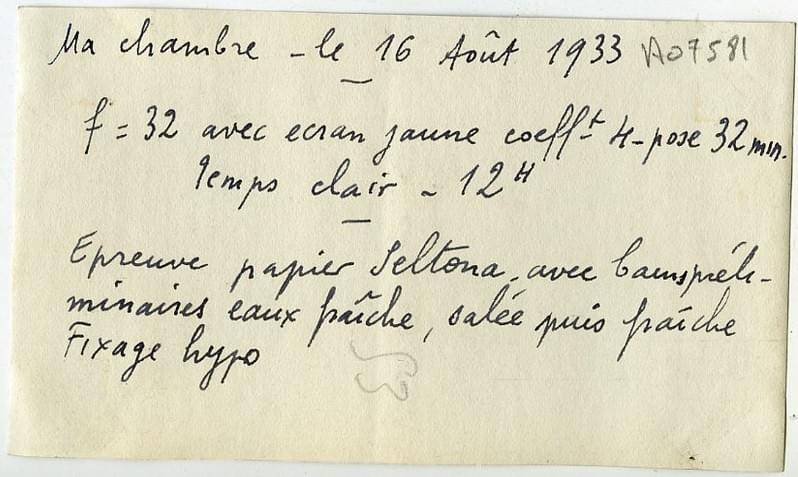 Ma chambre - le 16 Août 1933 A07581
f = 32 avec ecran jaune coeff.t 4 - pose 32 min.
Temps clair - 12H
Epreuve papier Seltona, avec bains préli-
minaires eaux fraîche, salée puis fraîche
Fixage hypo